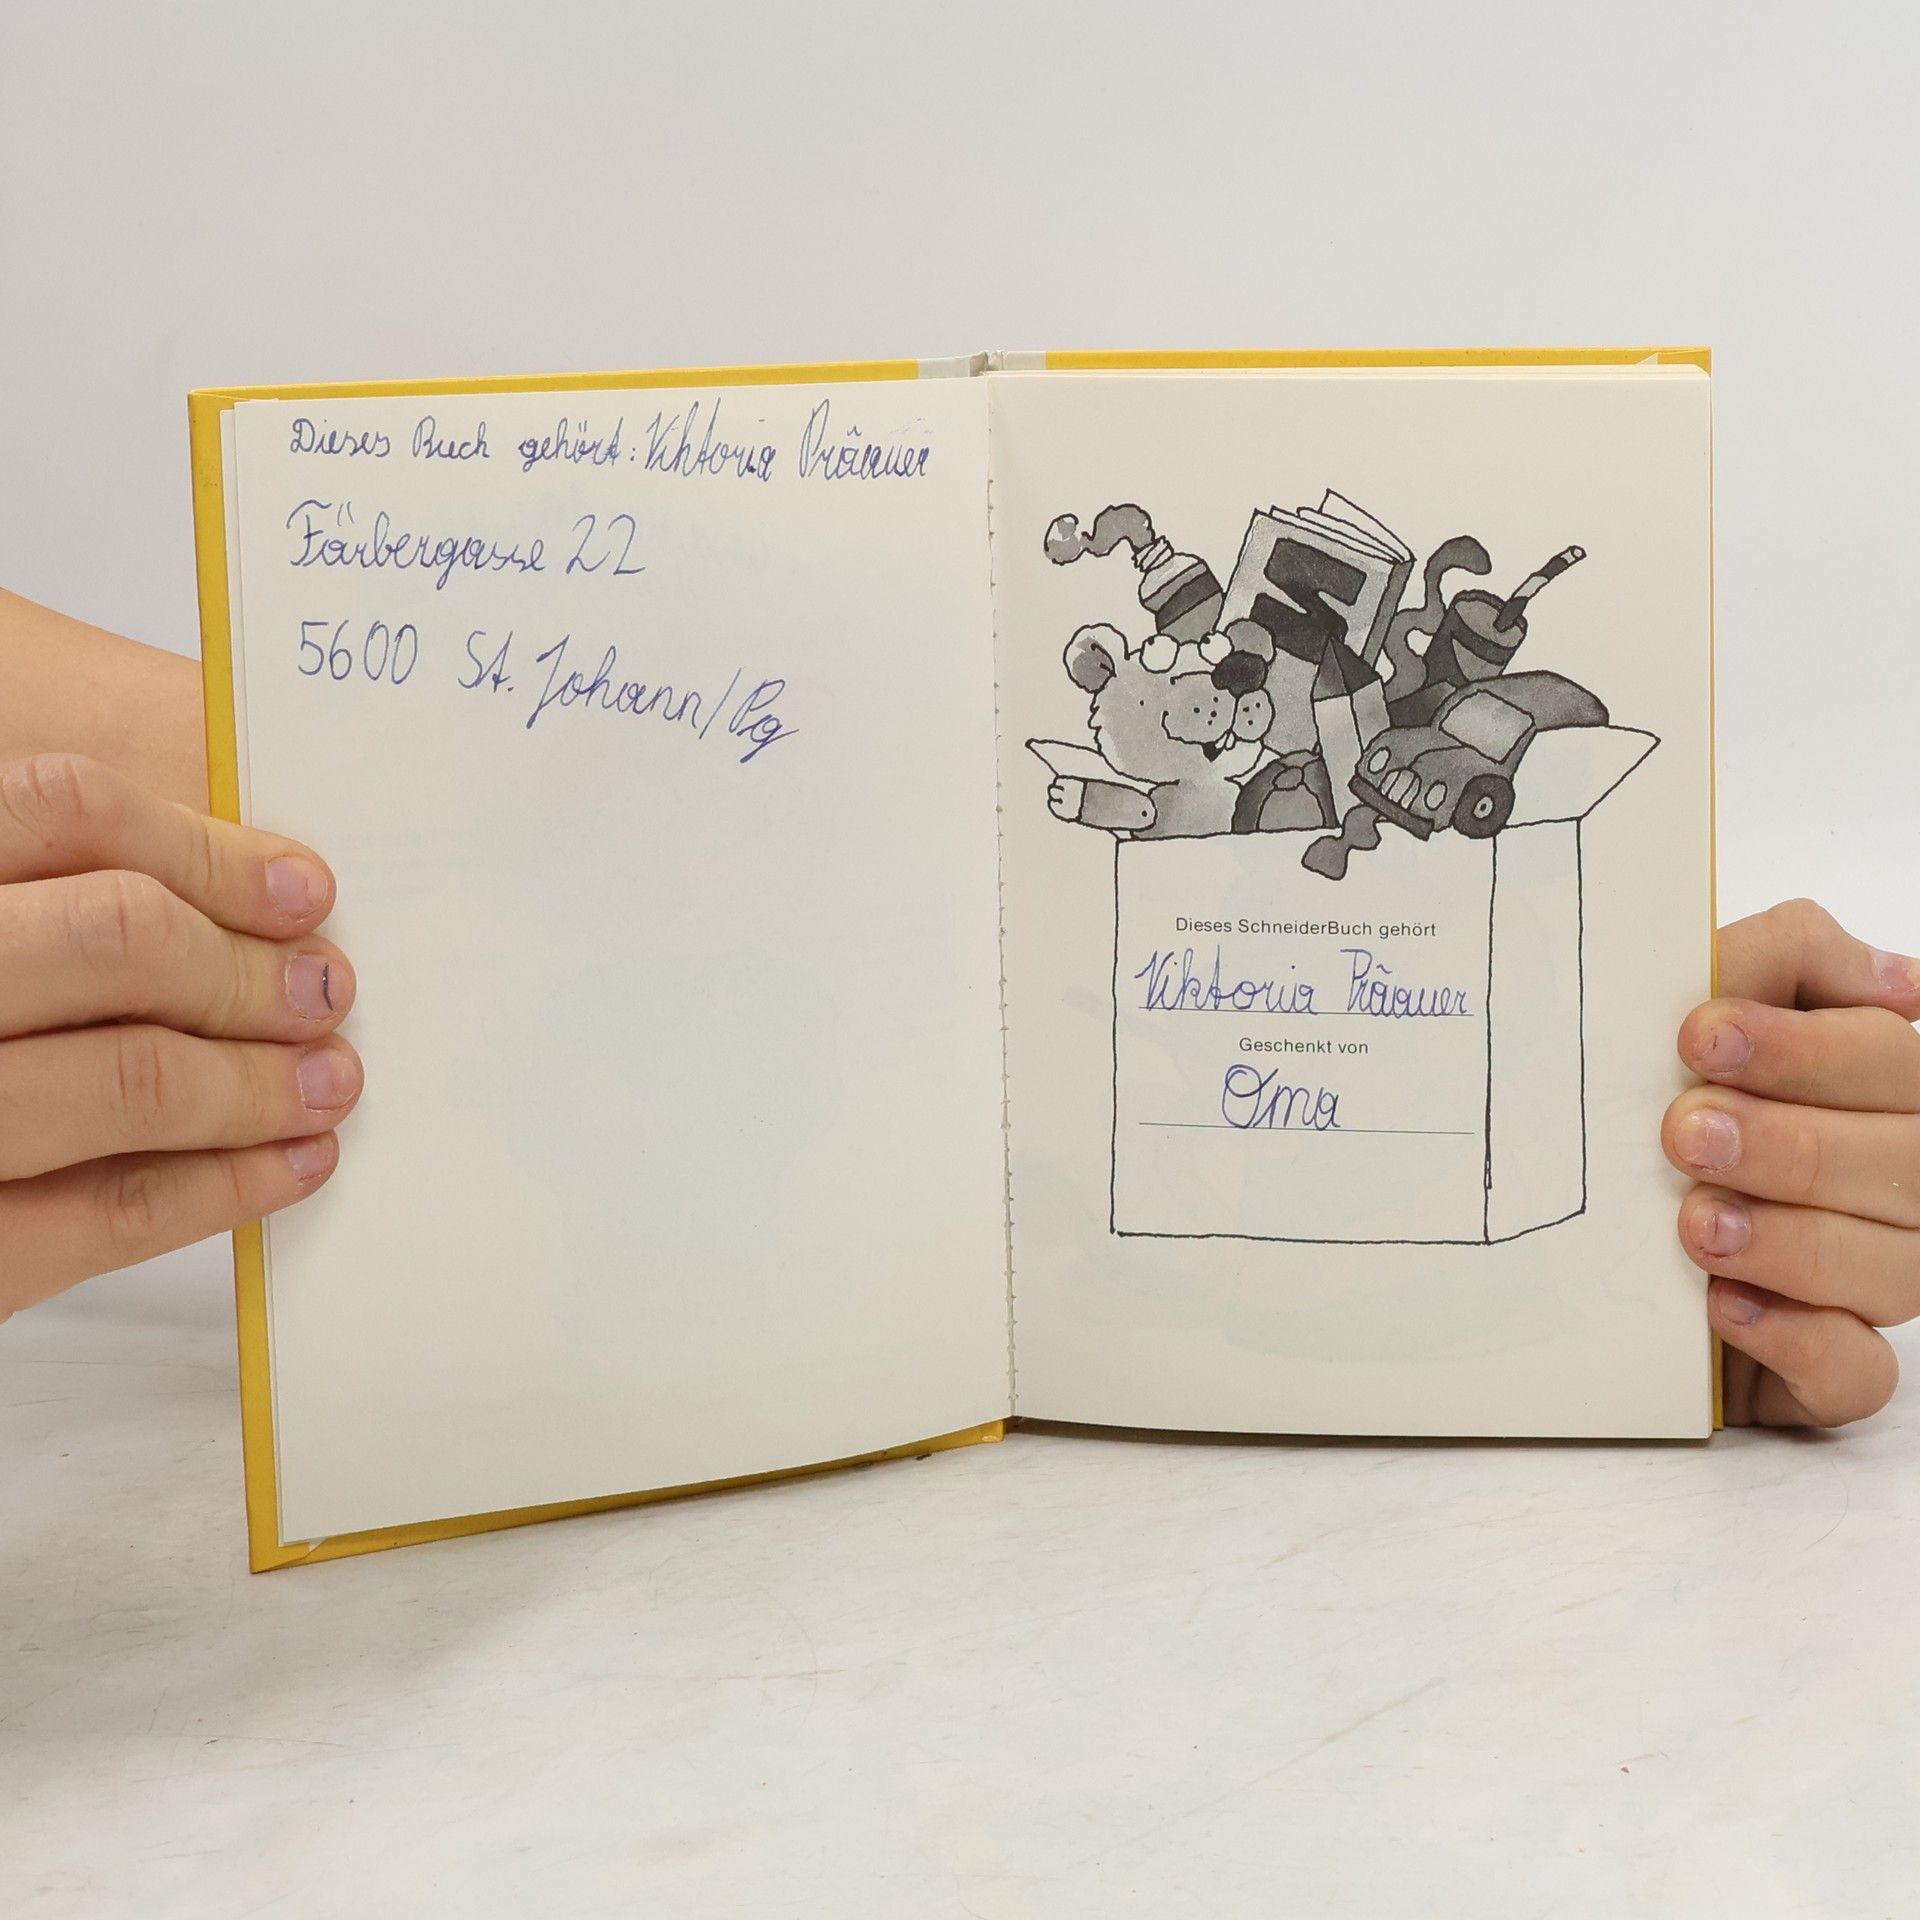 Dieses Buch gehört: Viktoria Präauer
Färbergasse 22
5600 St. Johann/Pg
Dieses SchneiderBuch gehört
Viktoria Präauer
Geschenkt von
Oma